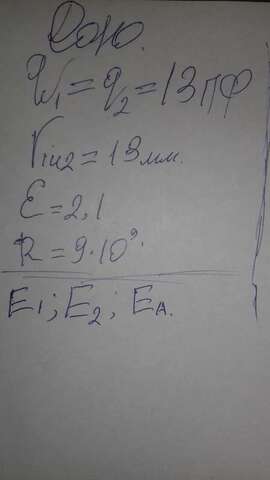 Дано.
q₁ = q₂ = 13пФ
r₁и₂ = 13мм.
ε = 2,1
R = 9·10⁹.
E₁; E₂; EA.